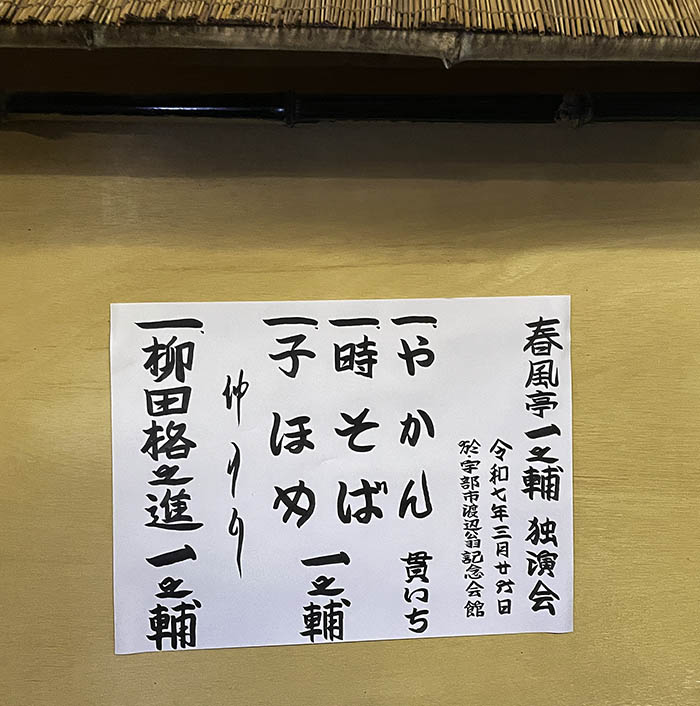 春風亭一之輔 独演会
令和七年三月廿六日
於・宇部市渡辺翁記念会館
一、やかん 貫いち
一、時そば
一、子ほめ 一之輔
仲入り
一、柳田格之進 一之輔